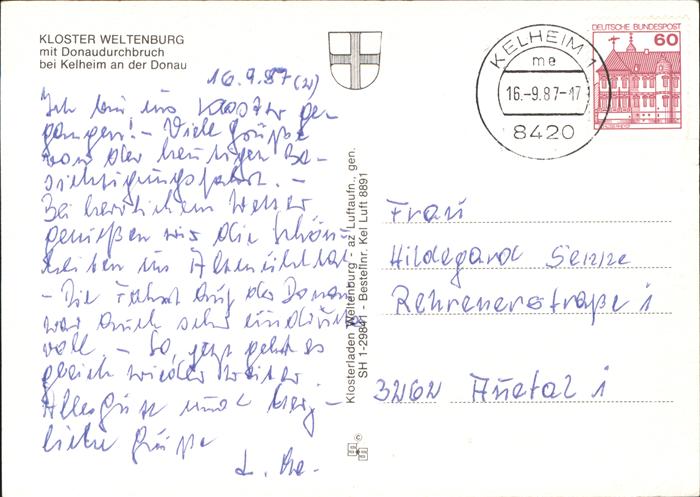 KLOSTER WELTENBURG
mit Donaudurchbruch
bei Kelheim an der Donau
16.9.87 (21)
Ich bin ins Kloster ge-
gangen! - Viele Grüße
von der heutigen Be-
sichtigungsfahrt. -
Bei herrlichem Wetter
genießen wir die Schön-
heiten im Altmühltal
- Die Fahrt auf der Donau
war auch sehr eindrucks
voll. - So, jetzt geht es
gleich wieder weiter.
Alles Gute und herz-
liche Grüße
Klosterladen Weltenburg - az Luftaufn., gen.
SH 1-29841 - Bestellnr. Kel Luft 8891
DEUTSCHE BUNDESPOST
60
KELHEIM 1
me
16.-9.87-17
8420
Frau
Hildegard
1
3262 Auetal 1